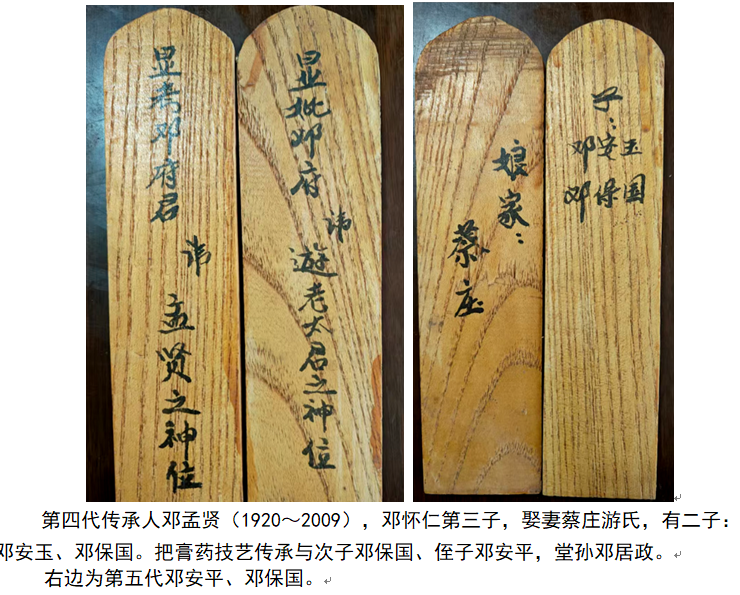 显考邓府君
讳
孟贤之神位
显妣邓府
讳
遊老太君之神位
娘家：
蔡庄
子：
邓安玉
邓保国
第四代传承人邓孟贤（1920～2009），邓怀仁第三子，娶妻蔡庄游氏，有二子：
邓安玉、邓保国。把膏药技艺传承与次子邓保国、侄子邓安平，堂孙邓居政。
右边为第五代邓安平、邓保国。